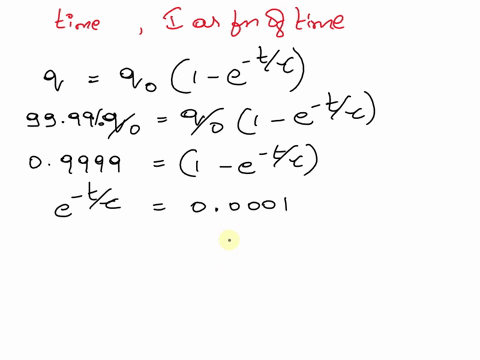 time , I as fn of time
q = q₀ (1 - e^{-t/τ})
99.99% q₀ = q₀ (1 - e^{-t/τ})
0.9999 = (1 - e^{-t/τ})
e^{-t/τ} = 0.0001